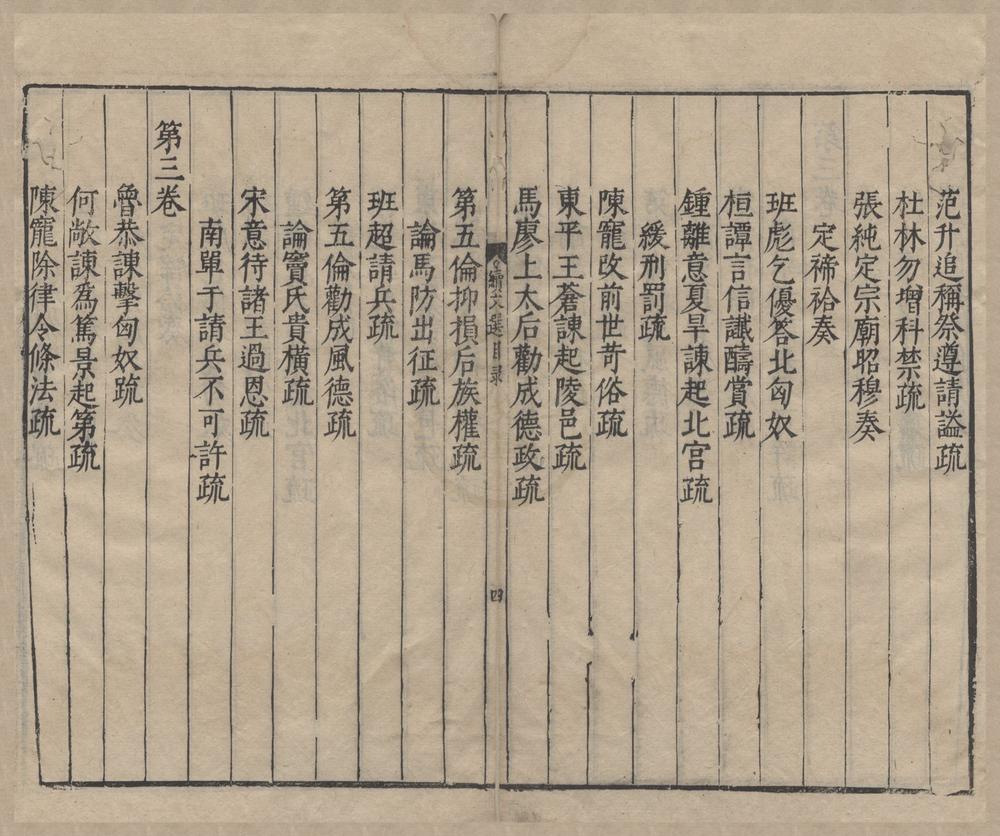 范升追稱祭遵請謚疏
杜林勿增科禁疏
張純定宗廟昭穆奏
定禘祫奏
班彪乞優答北匈奴
桓譚言信讖醻賞疏
鍾離意夏旱諫起北宮疏
緩刑罰疏
陳寵改前世苛俗疏
東平王蒼諫起陵邑疏
馬廖上太后勸成德政疏
續文選目录
四
第五倫抑損后族權疏
論馬防出征疏
班超請兵疏
第五倫勸成風德疏
論竇氏貴橫疏
宋意待諸王過恩疏
南單于請兵不可許疏
第三卷
魯恭諫擊匈奴疏
何敞諫為篤景起第疏
陳寵除律令條法疏